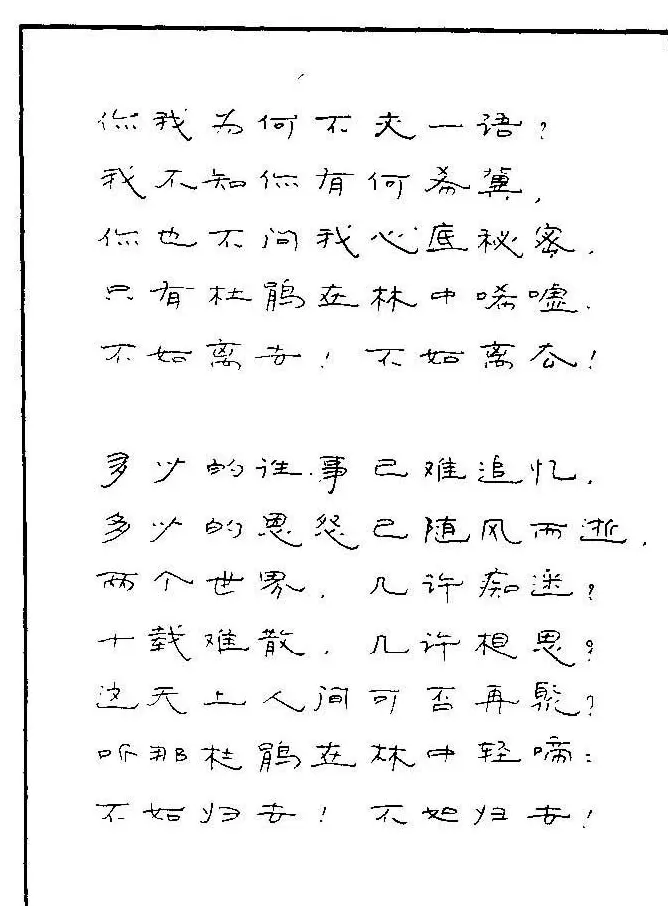 你我为何不交一语?
我不知你有何希冀,
你也不问我心底秘密.
只有杜鹃在林中唏嘘.
不如离去!不如离去!
多少的往事已难追忆.
多少的恩怨已随风而逝.
两个世界.几许痴迷?
十载难散.几许相思?
这天上人间可否再聚?
听那杜鹃在林中轻啼:
不如归去!不如归去!